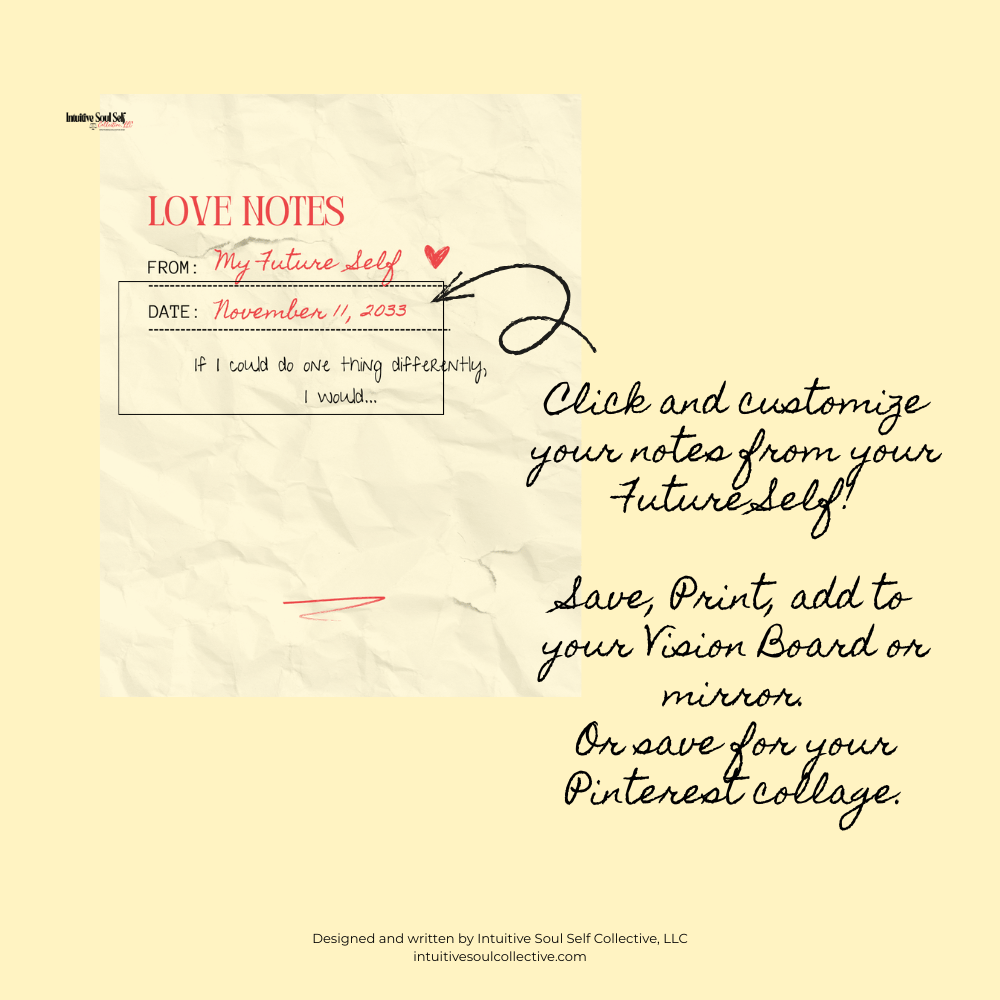 Intuitive Soul Self
Collective, LLC
LOVE NOTES
FROM: My Future Self
DATE: November 11, 2033
If I could do one thing differently,
I would...
Click and customize
your notes from your
Future Self!
Save, Print, add to
your Vision Board or
mirror.
Or save for your
Pinterest collage.
Designed and written by Intuitive Soul Self Collective, LLC
intuitivesoulcollective.com